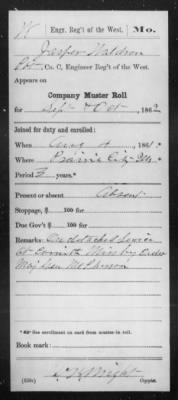 W Engr. Reg't of the West. Mo.
Jasper Waldron
Pvt, Co. C, Engineer Reg't of the West.
Appears on
Company Muster Roll
for Sept & Oct, 1862
Joined for duty and enrolled:
When Aug, 186
Where Prairie City
Period years.*
Present or absent Absent
Stoppage, $ 100 for
Due Gov't $ 100 for
Remarks: On detached Service
at Corinth Miss by Order
Maj Gen McPherson
*See enrollment on card from muster-in roll.
Book mark:
Wright
(358c) Copyist.